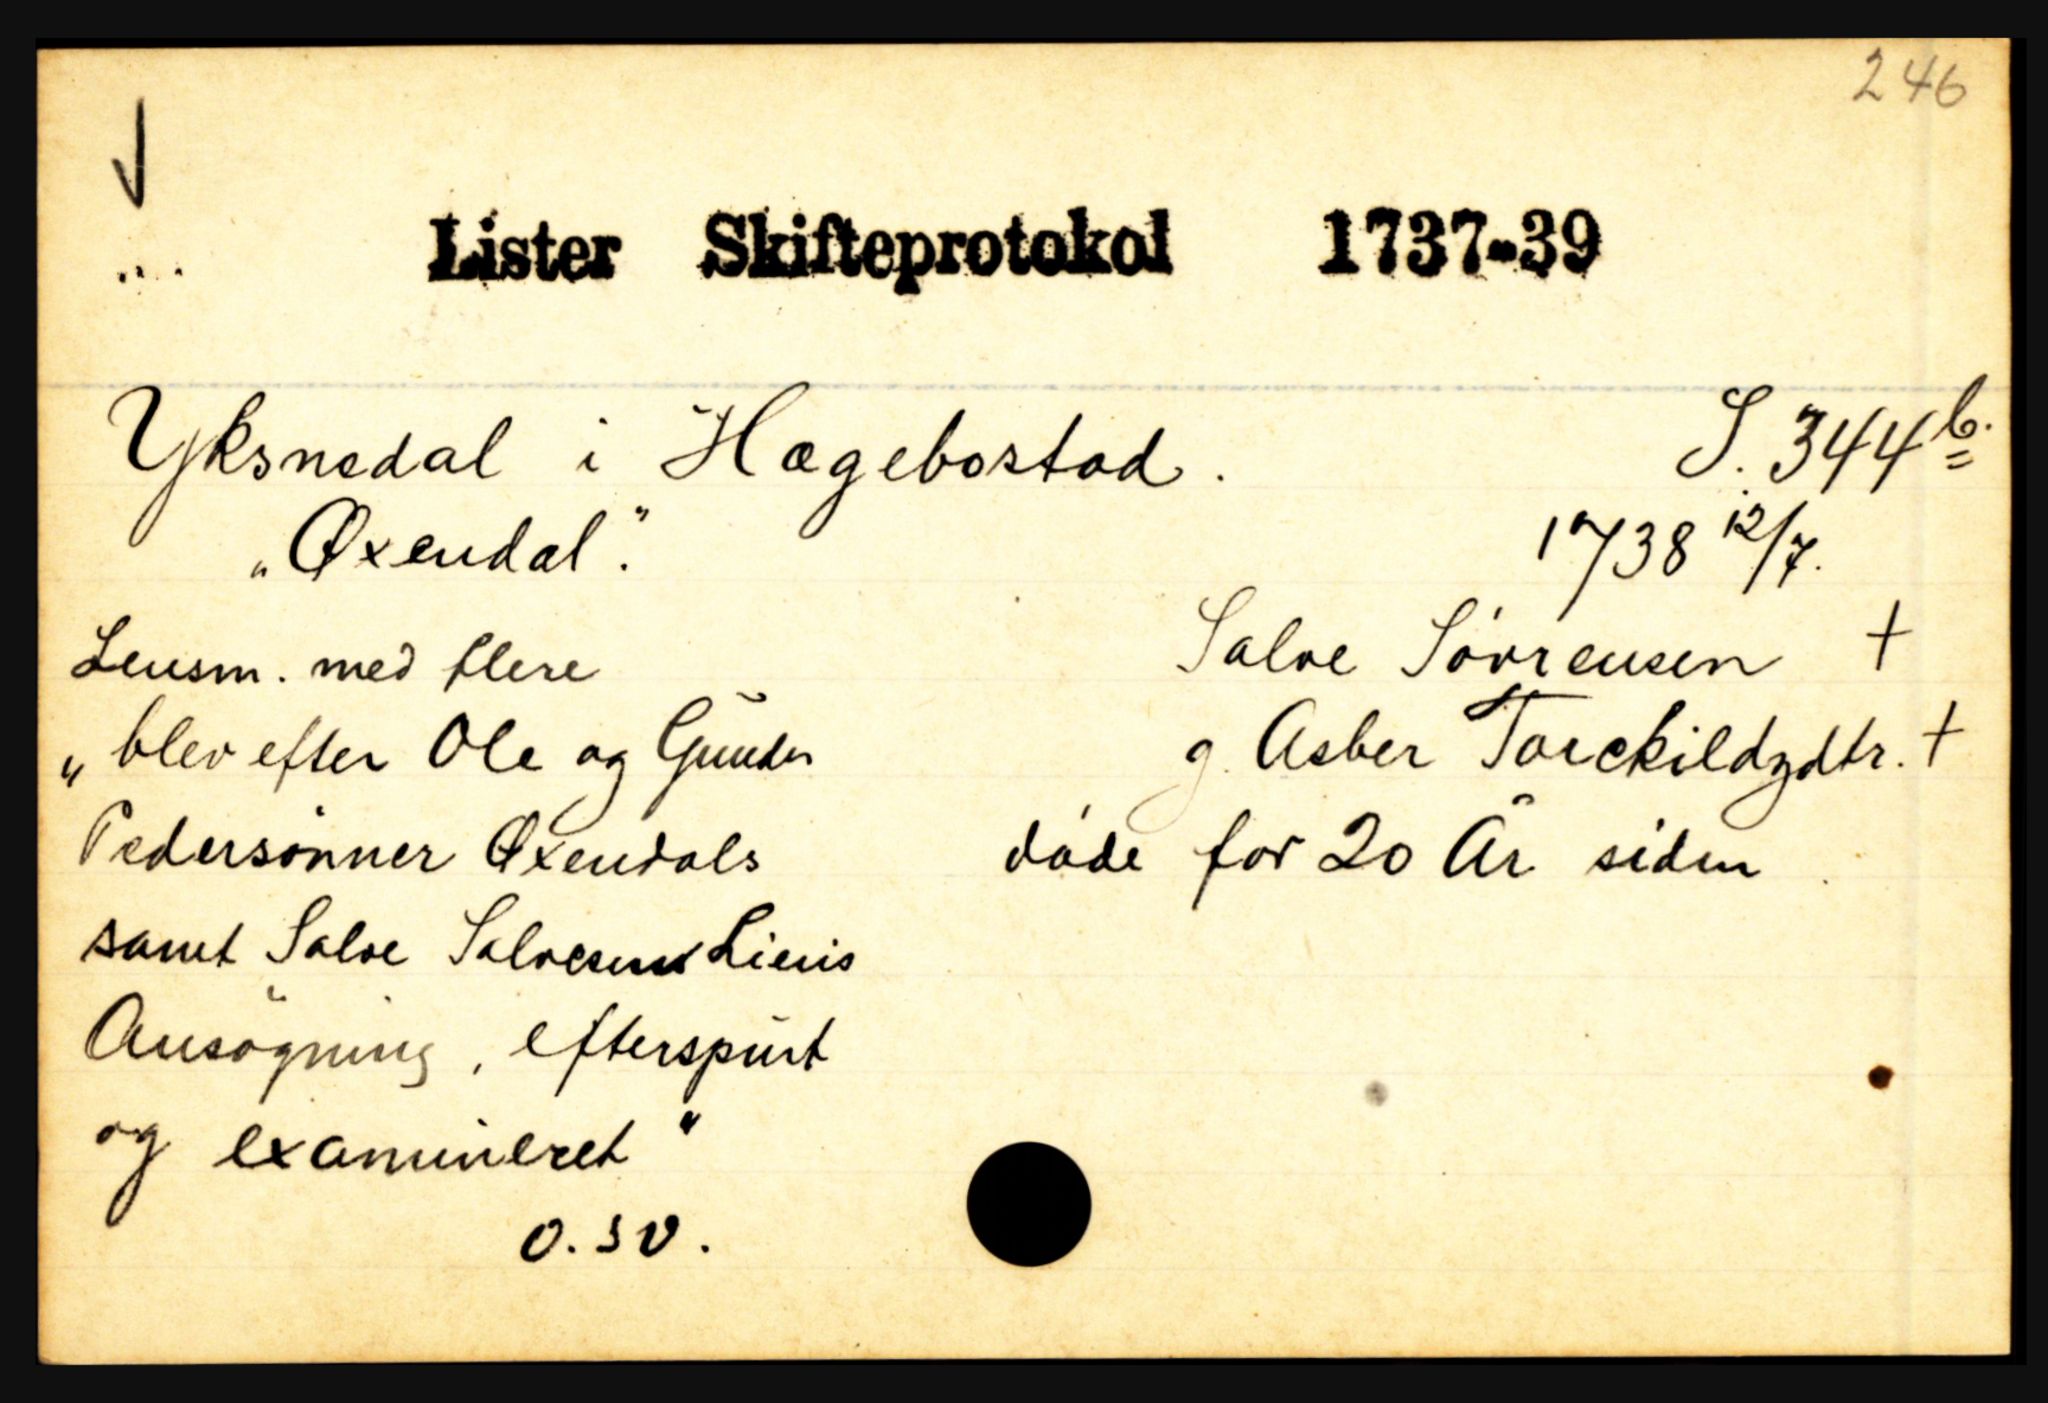 246
Lister Skifteprotokol 1737-39
Yksnedal i Hægebostad. S. 344 b.
"Øxendal". 1738 12/7.
Lensm. med flere
Salve Sörrensen †
"blev efter Ole og Gunder
g. Asber Torckildzdtr. †
Pedersønner Øxendals
døde for 20 År siden
samt Salve Salvesen Lienis
Ansøgning, efterspurt
og examineret"
o.sv.